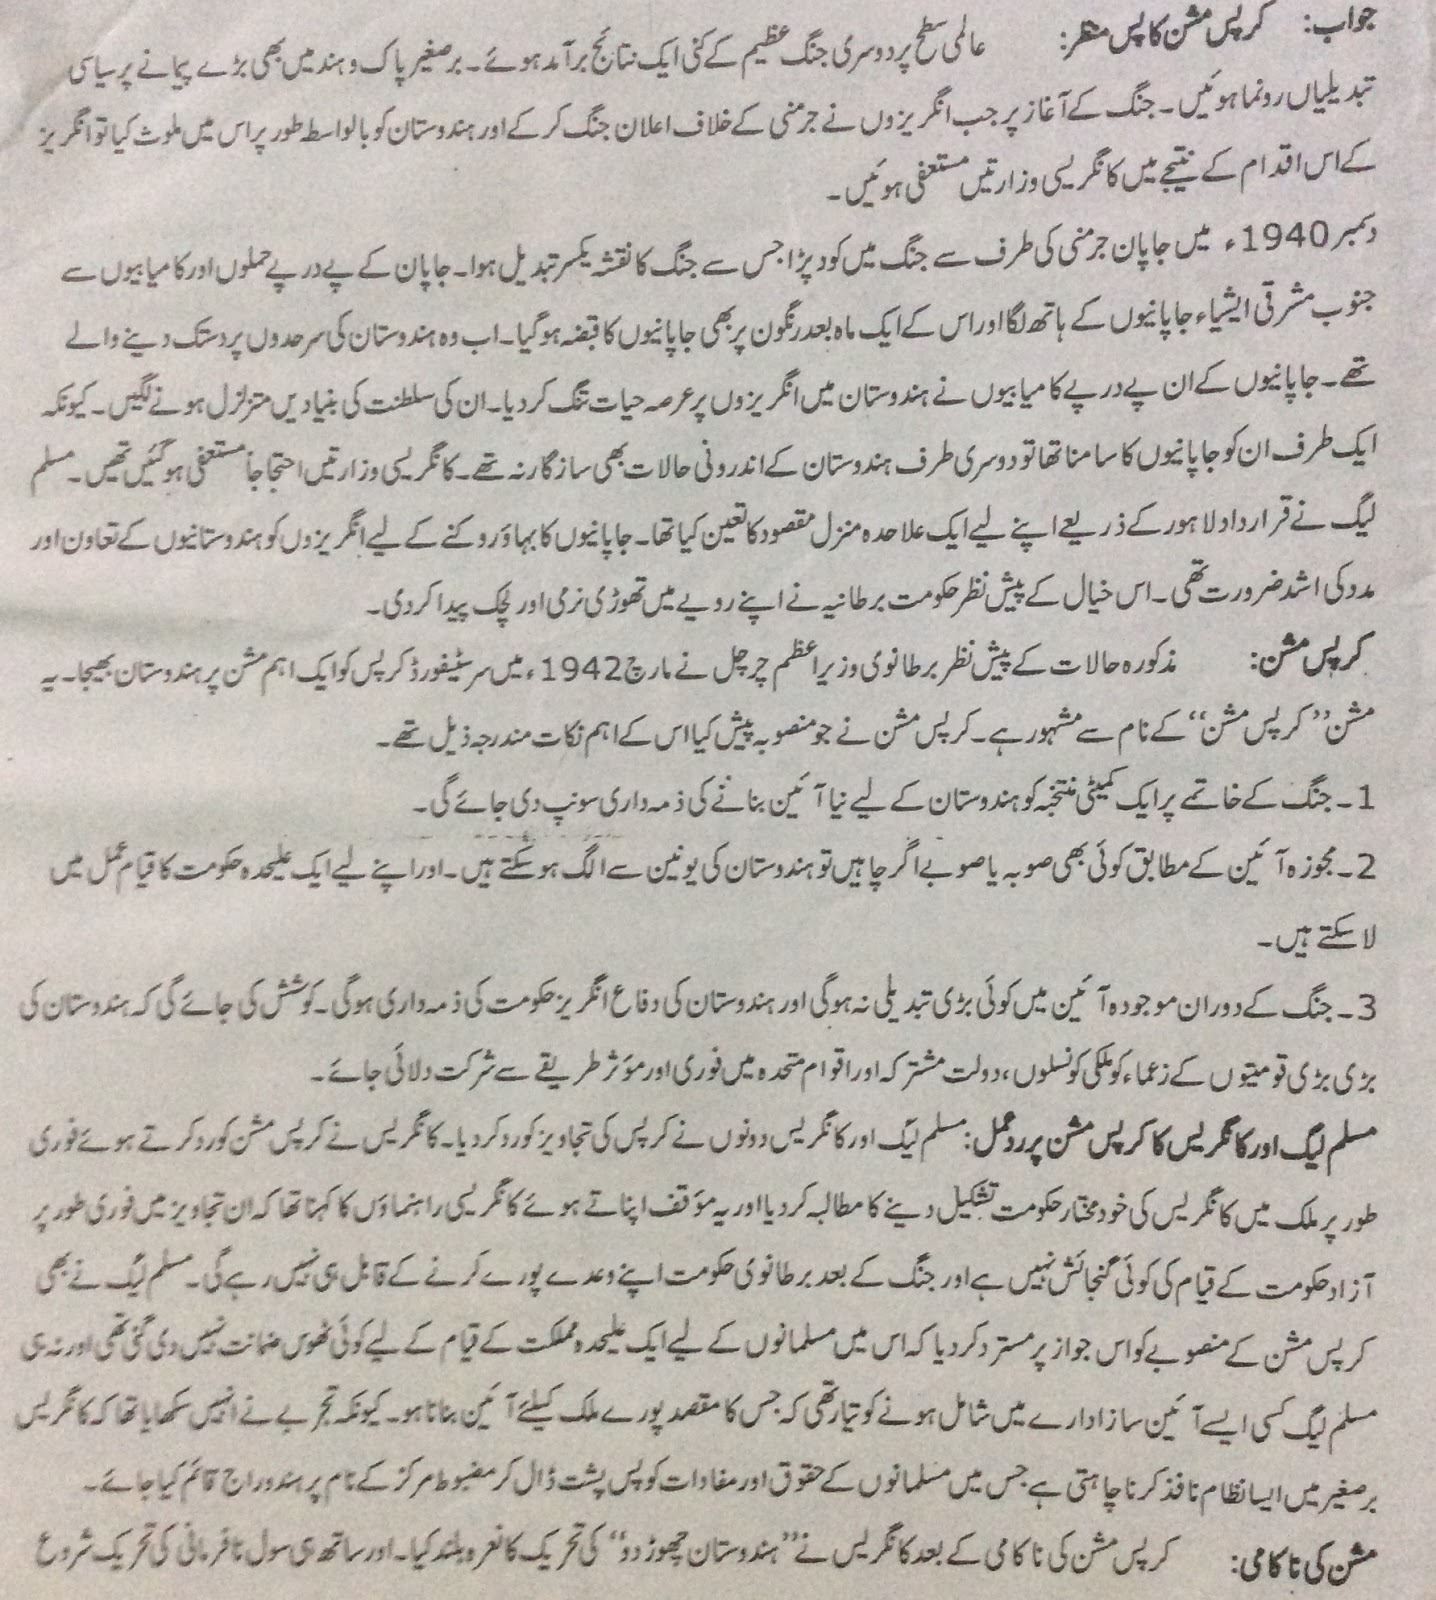 جواب: کرپس مشن کا پس منظر: عالمی سطح پر دوسری جنگ عظیم کے کئی ایک نتائج برآمد ہوئے۔ برصغیر پاک و ہند میں بھی بڑے پیمانے پر سیاسی
تبدیلیاں رونما ہوئیں۔ جنگ کے آغاز پر جب انگریزوں نے جرمنی کے خلاف اعلان جنگ کر کے اور ہندوستان کو بالواسطہ طور پر اس میں ملوث کیا تو انگریز
کے اس اقدام کے نتیجے میں کانگریسی وزارتیں مستعفی ہوئیں۔
دسمبر 1940ء میں جاپان جرمنی کی طرف سے جنگ میں کود پڑا جس سے جنگ کا نقشہ یکسر تبدیل ہوا۔ جاپان کے پے در پے حملوں اور کامیابیوں سے
جنوب مشرقی ایشیاء جاپانیوں کے ہاتھ لگا اور اس کے ایک ماہ بعد رنگون پر بھی جاپانیوں کا قبضہ ہو گیا۔ اب وہ ہندوستان کی سرحدوں پر دستک دینے والے
تھے۔ جاپانیوں کے ان پے در پے کامیابیوں نے ہندوستان میں انگریزوں پر عرصہ حیات تنگ کر دیا۔ ان کی سلطنت کی بنیادیں متزلزل ہونے لگیں۔ کیونکہ
ایک طرف ان کو جاپانیوں کا سامنا تھا تو دوسری طرف ہندوستان کے اندرونی حالات بھی سازگار نہ تھے۔ کانگریسی وزارتیں احتجاجاً مستعفی ہو گئیں تھیں۔ مسلم
لیگ نے قرارداد لاہور کے ذریعے اپنے لیے ایک علاحدہ منزل مقصود کا تعین کیا تھا۔ جاپانیوں کا بہاؤ روکنے کے لیے انگریزوں کو ہندوستانیوں کے تعاون اور
مدد کی اشد ضرورت تھی۔ اس خیال کے پیش نظر حکومت برطانیہ نے اپنے رویے میں تھوڑی نرمی اور لچک پیدا کر دی۔
کرپس مشن: مذکورہ حالات کے پیش نظر برطانوی وزیراعظم چرچل نے مارچ 1942ء میں سر سٹیفورڈ کرپس کو ایک اہم مشن پر ہندوستان بھیجا۔ یہ
مشن ”کرپس مشن“ کے نام سے مشہور ہے۔ کرپس مشن نے جو منصوبہ پیش کیا اس کے اہم نکات مندرجہ ذیل تھے۔
1۔ جنگ کے خاتمے پر ایک کمیٹی منتخبہ کو ہندوستان کے لیے نیا آئین بنانے کی ذمہ داری سونپ دی جائے گی۔
2۔ مجوزہ آئین کے مطابق کوئی بھی صوبہ یا صوبے اگر چاہیں تو ہندوستان کی یونین سے الگ ہو سکتے ہیں۔ اور اپنے لیے ایک علیحدہ حکومت کا قیام عمل میں
لا سکتے ہیں۔
3۔ جنگ کے دوران موجودہ آئین میں کوئی بڑی تبدیلی نہ ہوگی اور ہندوستان کی دفاع انگریز حکومت کی ذمہ داری ہوگی۔ کوشش کی جائے گی کہ ہندوستان کی
بڑی بڑی قومیتوں کے زعماء کو ملکی کونسلوں، دولت مشترکہ اور اقوام متحدہ میں فوری اور مؤثر طریقے سے شرکت دلائی جائے۔
مسلم لیگ اور کانگریس کا کرپس مشن پر ردعمل: مسلم لیگ اور کانگریس دونوں نے کرپس کی تجاویز کو رد کر دیا۔ کانگریس نے کرپس مشن کو رد کرتے ہوئے فوری
طور پر ملک میں کانگریس کی خودمختار حکومت تشکیل دینے کا مطالبہ کر دیا اور یہ مؤقف اپناتے ہوئے کانگریسی راہنماؤں کا کہنا تھا کہ ان تجاویز میں فوری طور پر
آزاد حکومت کے قیام کی کوئی گنجائش نہیں ہے اور جنگ کے بعد برطانوی حکومت اپنے وعدے پورے کرنے کے قابل ہی نہیں رہے گی۔ مسلم لیگ نے بھی
کرپس مشن کے منصوبے کو اس جواز پر مسترد کر دیا کہ اس میں مسلمانوں کے لیے ایک علیحدہ مملکت کے قیام کے لیے کوئی ٹھوس ضمانت نہیں دی گئی تھی اور نہ ہی
مسلم لیگ کسی ایسے آئین ساز ادارے میں شامل ہونے کو تیار تھی کہ جس کا مقصد پورے ملک کیلئے آئین بنانا ہو۔ کیونکہ تجربے نے انہیں سکھایا تھا کہ کانگریس
برصغیر میں ایسا نظام نافذ کرنا چاہتی ہے جس میں مسلمانوں کے حقوق اور مفادات کو پس پشت ڈال کر مضبوط مرکز کے نام پر ہندو راج قائم کیا جائے۔
مشن کی ناکامی: کرپس مشن کی ناکامی کے بعد کانگریس نے ”ہندوستان چھوڑ دو“ کی تحریک کا نعرہ بلند کیا۔ اور ساتھ ہی سول نافرمانی کی تحریک شروع